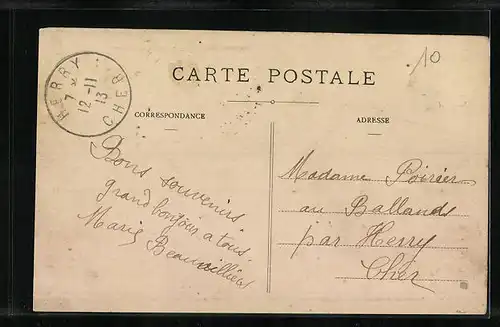 10
CARTE POSTALE
HERRY
7
12 -11
13
CHER
CORRESPONDANCE
ADRESSE
Bons souvenirs
grand bonjour a tous.
Marie Beauvilliers
Madame Poirier
au Ballands
par Herry
Cher